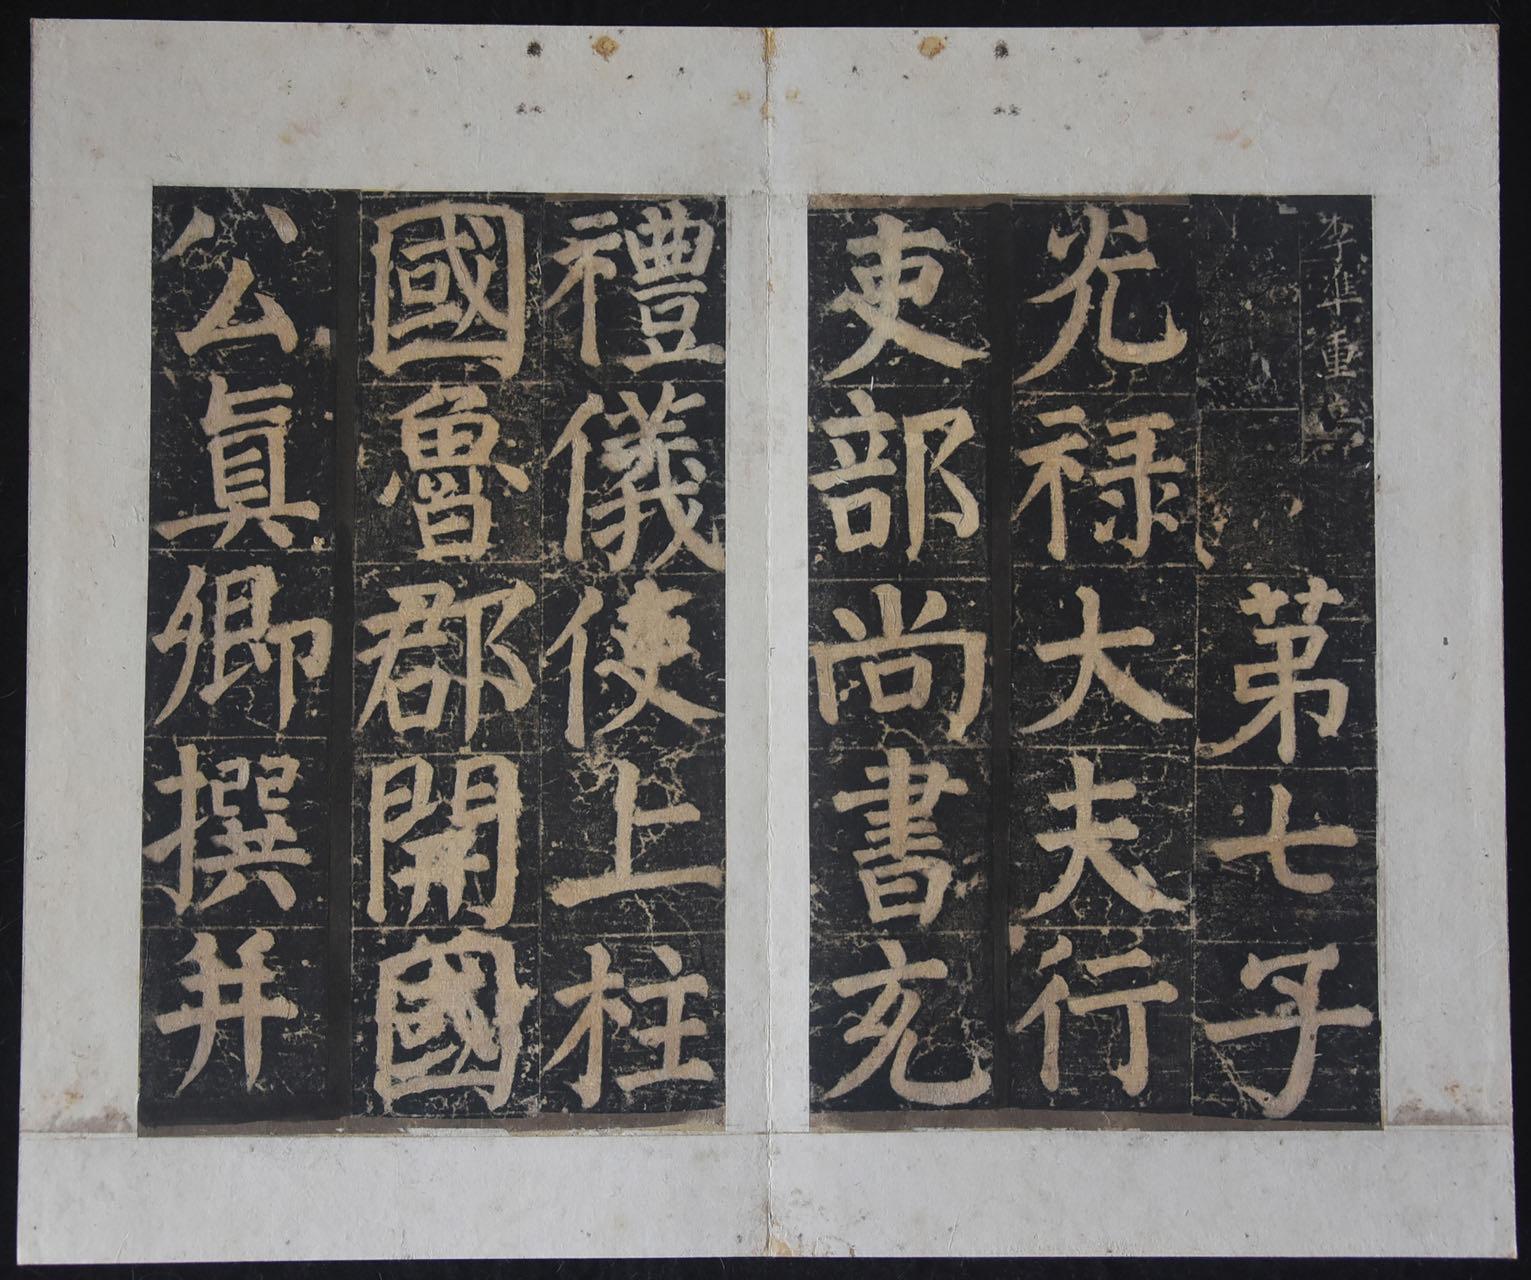 李準重
第七子
光禄大夫行
吏部尚書充
禮儀使上柱
國魯郡開國
公真卿撰并